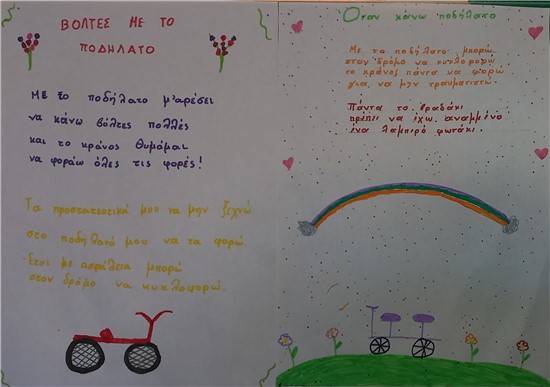 ΒΟΛΤΕΣ ΜΕ ΤΟ
ΠΟΔΗΛΑΤΟ
ΜΕ το ποδήλατο μ'αρέσει
να κάνω βόλτες πολλές
και το κράνος θυμάμαι
να φοράω όλες τις φορές!
Τα προστατευτικά μου να μην ξεχνώ
στο ποδήλατό μου να τα φορώ.
Έτσι με ασφάλεια μπορώ
στον δρόμο να κυκλοφορώ.
Όταν κάνω ποδήλατο
Με το ποδήλατο μπορώ
στον δρόμο να κυκλοφορώ
το κράνος πάντα να φορώ
για να μην τραυματιστώ.
Πάντα το βραδάκι
πρέπει να έχω αναμμένο
ένα λαμπερό φωτάκι.